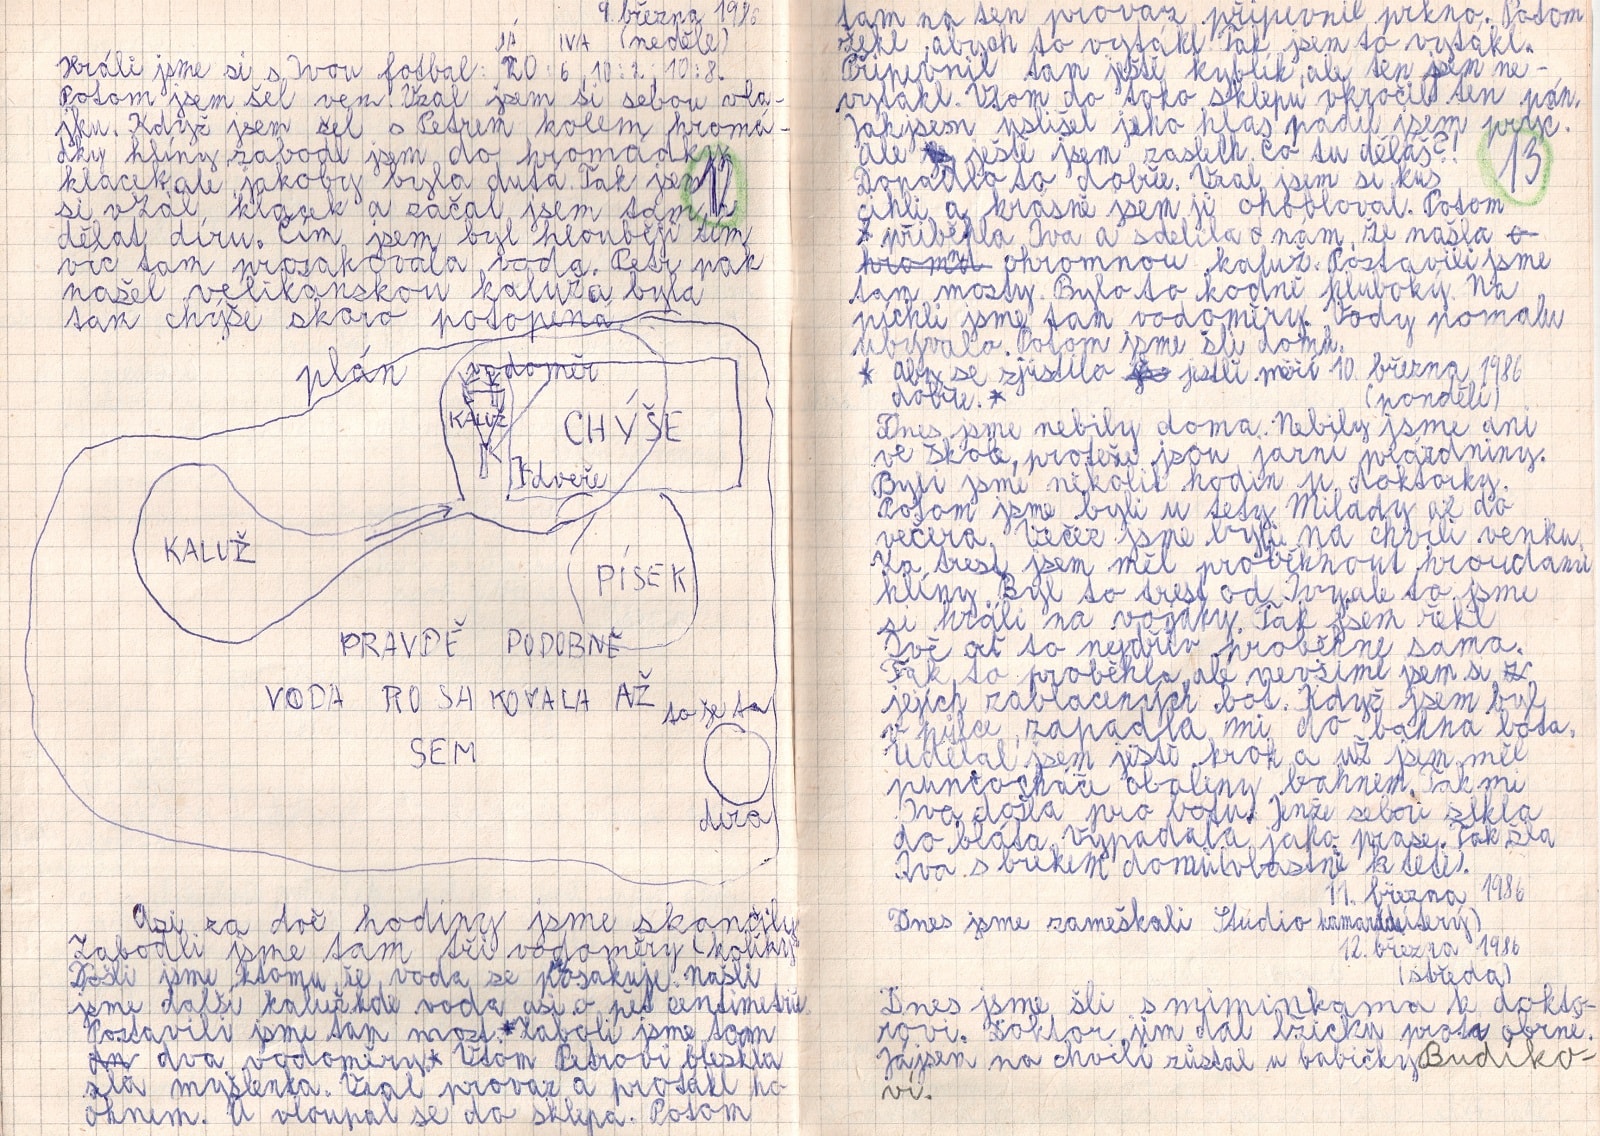 9. března 1986
JÁ IVA (neděle)
Hráli jsme si s Ivou fotbal: 20:6, 10:2, 10:8.
Potom jsem šel ven. Vzal jsem si sebou vla-
jku. Když jsem šel s Petrem kolem hromá-
dky hlíny zabodl jsem do hromádky
klacek, ale jakoby byla dutá. Tak jsem
12
si vzal klacek a začal jsem tam
dělat díru. Čím jsem byl hlouběji tím
víc tam prosakovala voda. Petr pak
našel velikánskou kaluž a byla
tak chýše skoro potopena.
plán
vodoměr
KALUŽ
CHÝŠE
dveře
KALUŽ
PÍSEK
PRAVDĚ PODOBNĚ
VODA PROSAKOVALA AŽ
SEM
to je ta
díra
Asi za dvě hodiny jsme skončily
Zabodli jsme tam tři vodoměry (kolíky)
Došli jsme ktomu, že voda se posakuje. Našli
jsme další kaluž kde voda asi o pět centimetrů.
Postavili jsme tam most. * Zaboli jsme tam
dva vodoměry * Vtom Petrovi bleskla
zlá myšlenka. Vzal provaz a protáhl ho
oknem. A vloupal se do sklepa. Potom
tam na ten provaz připevnil prkno. Potom
řekl abych to vytákl. Tak jsem to vytákl.
Připevnil tam ještě kyblík, ale ten jsem ne-
vytákl. Vtom do toho sklepu vkročil ten pán.
Jak jsem uslišel jeho hlas pádil jsem pryč.
Ale ještě jsem zaslech. Co tu děláš?!
13
Dopadlo to dobře. Vzal jsem si kus
cihli a krásně jsem ji ohobloval. Potom
přiběhla Iva a sdělila nám, že našla o-
hromn ohromnou kaluž. Postavili jsme
tam mosty. Bylo to hodně hluboký. Na
píchli jsme tam vodoměry. Vody pomalu
ubývalo. Potom jsme šli domů.
* Aby se zjistilo jestli měří 10. března 1986
dobře. * (pondělí)
Dnes jsme nebily doma. Nebily jsme ani
ve škole, protože jsou jarní prázdniny.
Byli jsme několik hodin u doktorky.
Potom jsme byli u tety Milady až do
večera. Večer jsme byli na chvíli venku.
Za trest jsem měl proběhnout hroudami
hlíny. Byl to trest od Ivy, ale to jsme
si hráli na vojáky. Tak jsem řekl
Ivě ať to nejdřív proběhne sama.
Tak to proběhla, ale nevšiml jsem si
jejich zablácených bot. Když jsem byl
v půlce, zapadla mi do bahna bota.
Udělal jsem ještě krok a už jsem měl
punčocháče obaleny bahnem. Tak mi
Iva došla pro botu. Jenže sebou šlkla
do bláta. Vypadala jako prase. Tak šla
Iva s brekem domů (vlastně k tetě).
11. března 1986
Dnes jsme zameškali Studio kamarád (úterý)
12. března 1986
(středa)
Dnes jsme šli s miminkama k dokto-
rovi. Doktor jim dal lžičku proti obrně.
Já jsem na chvíli zůstal u babičky Budíko-
vi.